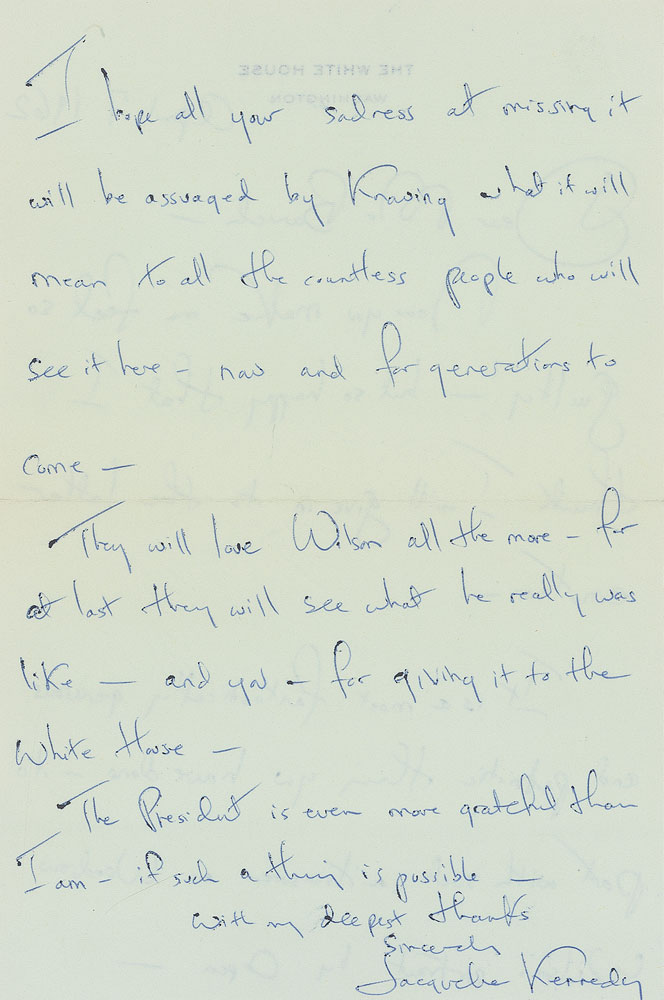 I hope all your sadness at missing it
will be assuaged by knowing what it will
mean to all the countless people who will
see it here – now and for generations to
come —
They will love Wilson all the more – for
at last they will see what he really was
like — and you – for giving it to the
White House —
The President is even more grateful than
I am – if such a thing is possible —
with my deepest thanks
Sincerely
Jacqueline Kennedy
THE WHITE HOUSE
WASHINGTON